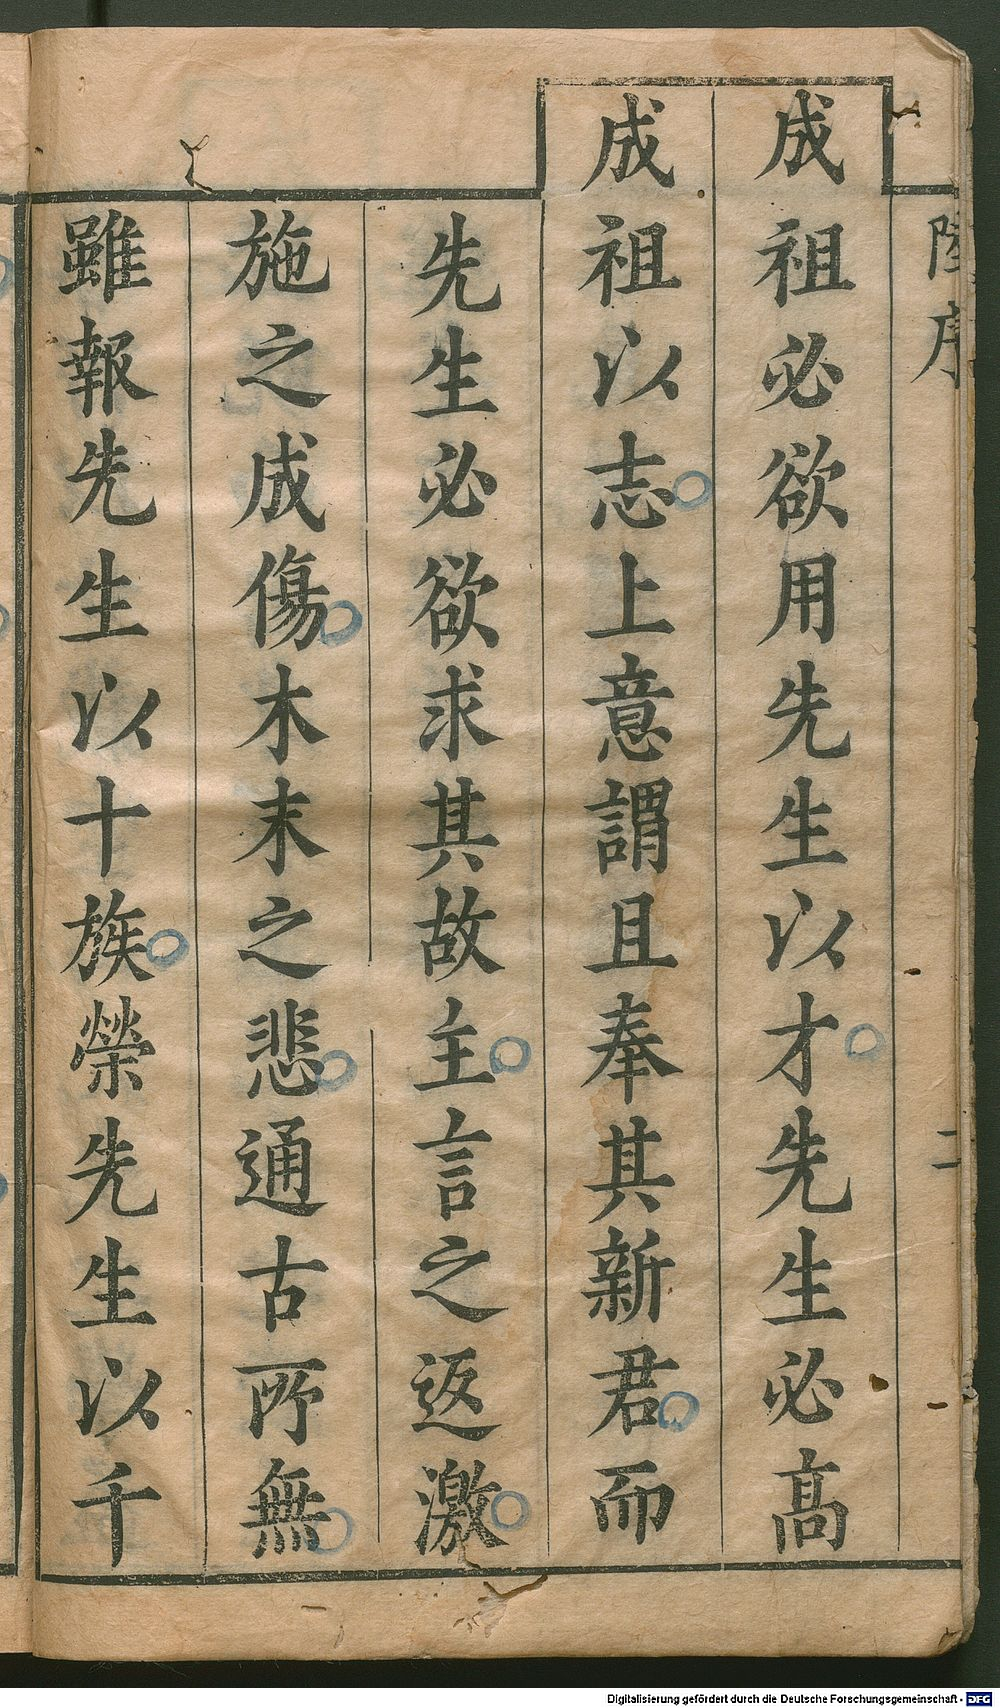 序
二
成祖必欲用先生以才先生必高
成祖以志上意謂且奉其新君而
先生必欲求其故主言之返激
施之成傷木末之悲通古所無
雖報先生以十族榮先生以千
Digitalisierung gefördert durch die Deutsche Forschungsgemeinschaft - DFG